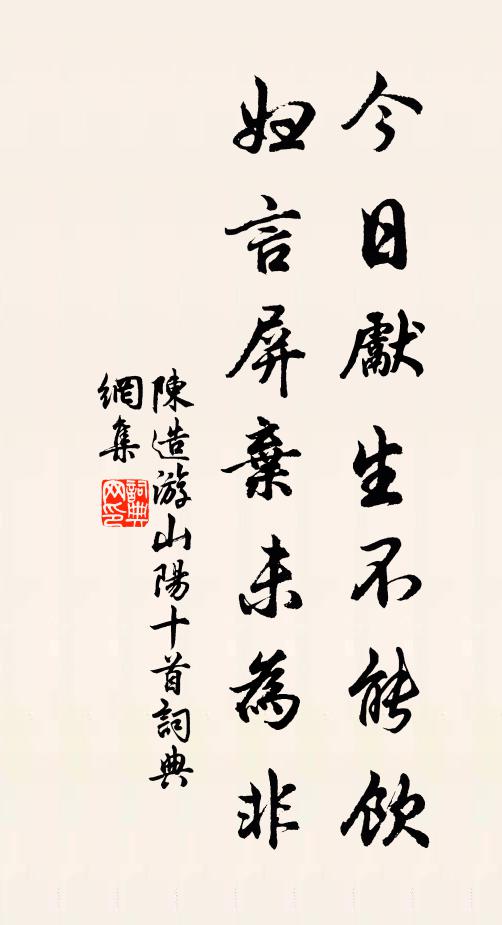 今日獻生不能飲
妇言屏棄未為非
陳造游山陽十首詞典
網集
詞典
网印